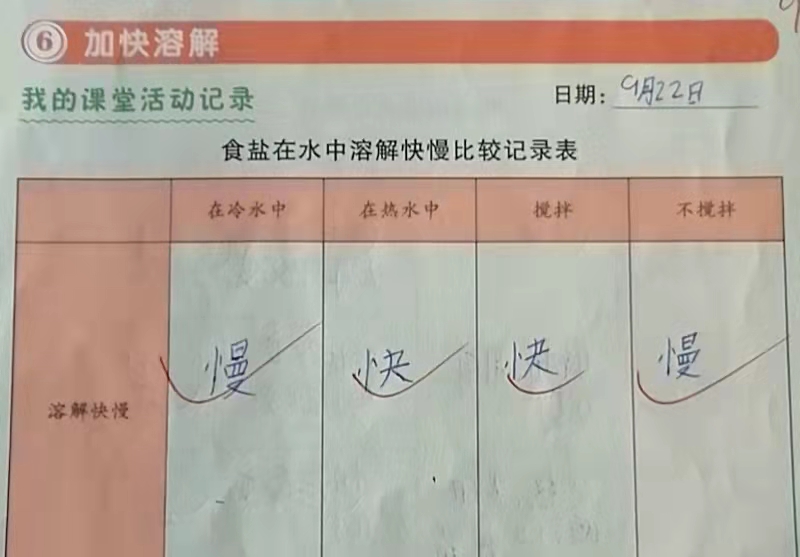 6 加快溶解
我的课堂活动记录
日期：9月22日
食盐在水中溶解快慢比较记录表
在冷水中 在热水中 搅拌 不搅拌
溶解快慢 慢 快 快 慢